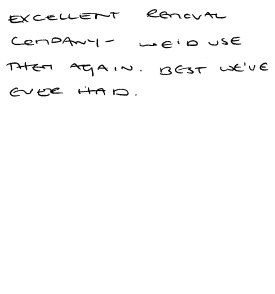 EXCELLENT REMOVAL
COMPANY - WE'D USE
THEM AGAIN. BEST WE'VE
EVER HAD.